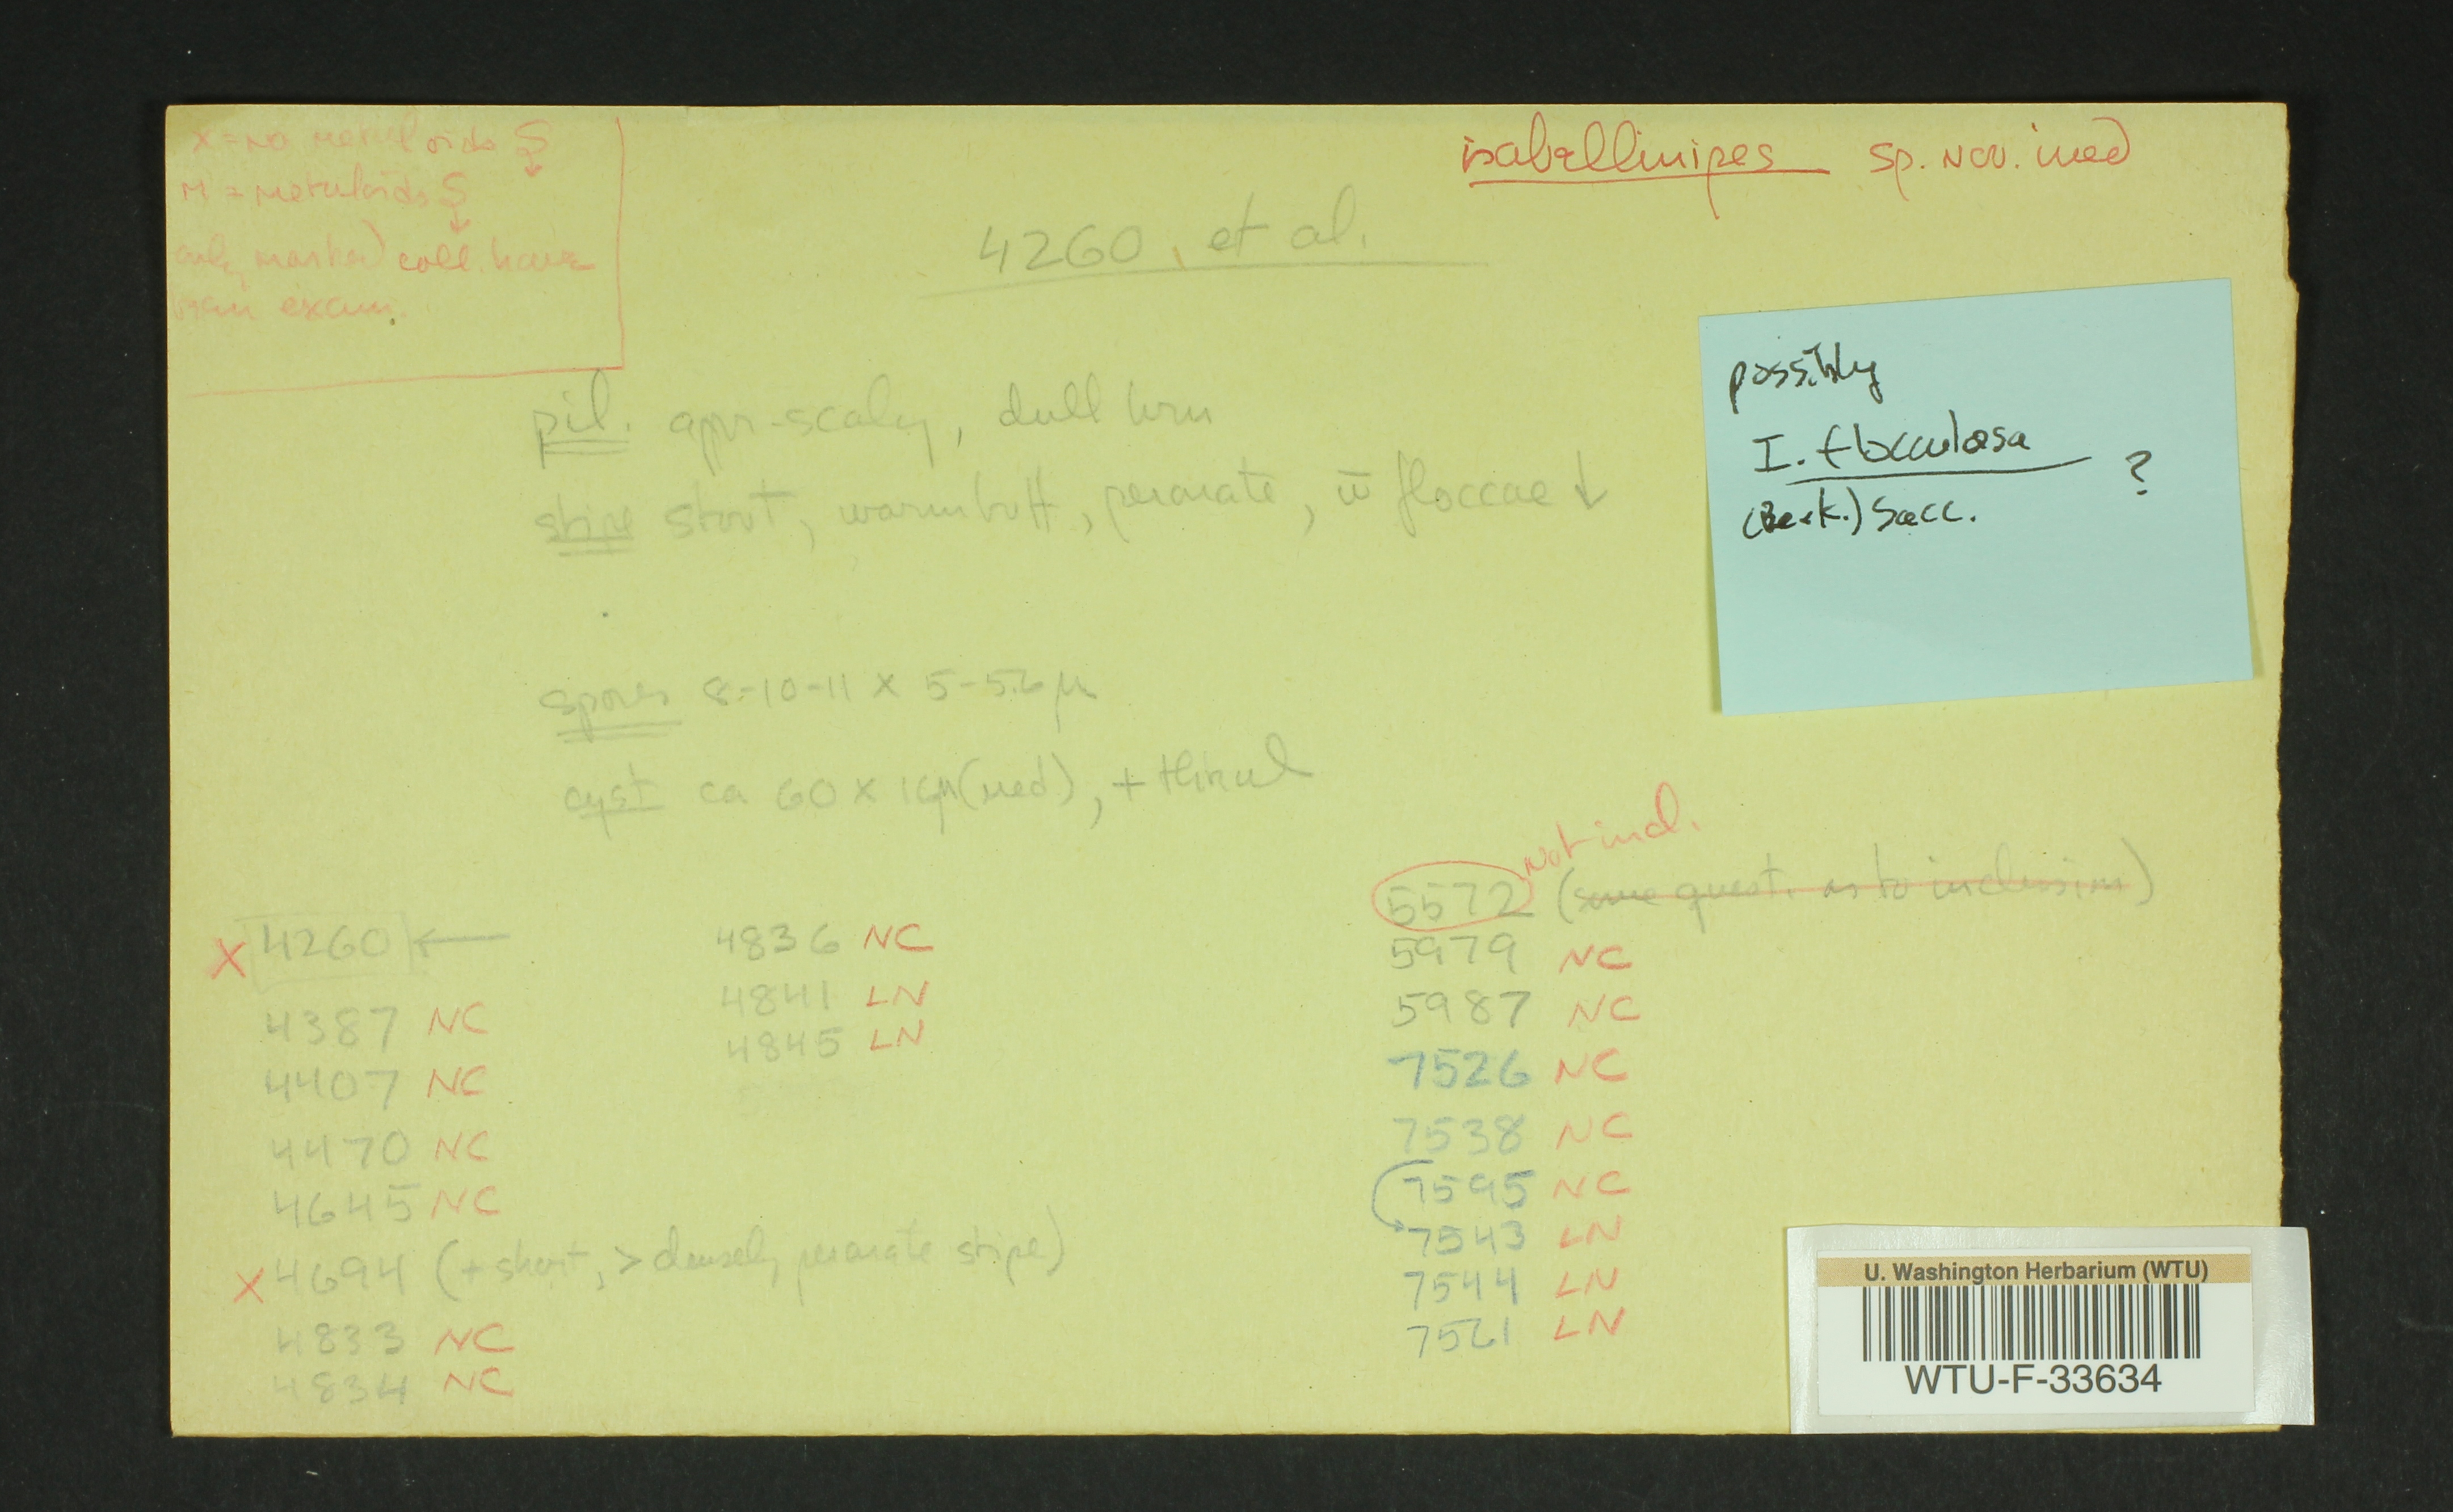 X = no metuloids
M = metuloids
only marked coll. have
been exam.
isabellinipes sp. nov. ined
4260, et al.
pil. appr-scaly, dull brn
stipe stout, warm buff, peronate, w̄ floccae ↓
possibly
I. flocculosa
(Berk.) Sacc. ?
spores 8-10-11 x 5-5.6 µ
cyst ca 60 x 16µ (med), + thinwl
X 4260 ←
4387 NC
4407 NC
4470 NC
4645 NC
X 4694 (+ short, > densely peronate stipe)
4833 NC
4834 NC
4836 NC
4841 LN
4845 LN
5572 not incl. (some quest. as to inclusion)
5979 NC
5987 NC
7526 NC
7538 NC
7595 NC
7543 LN
7544 LN
7521 LN
U. Washington Herbarium (WTU)
WTU-F-33634